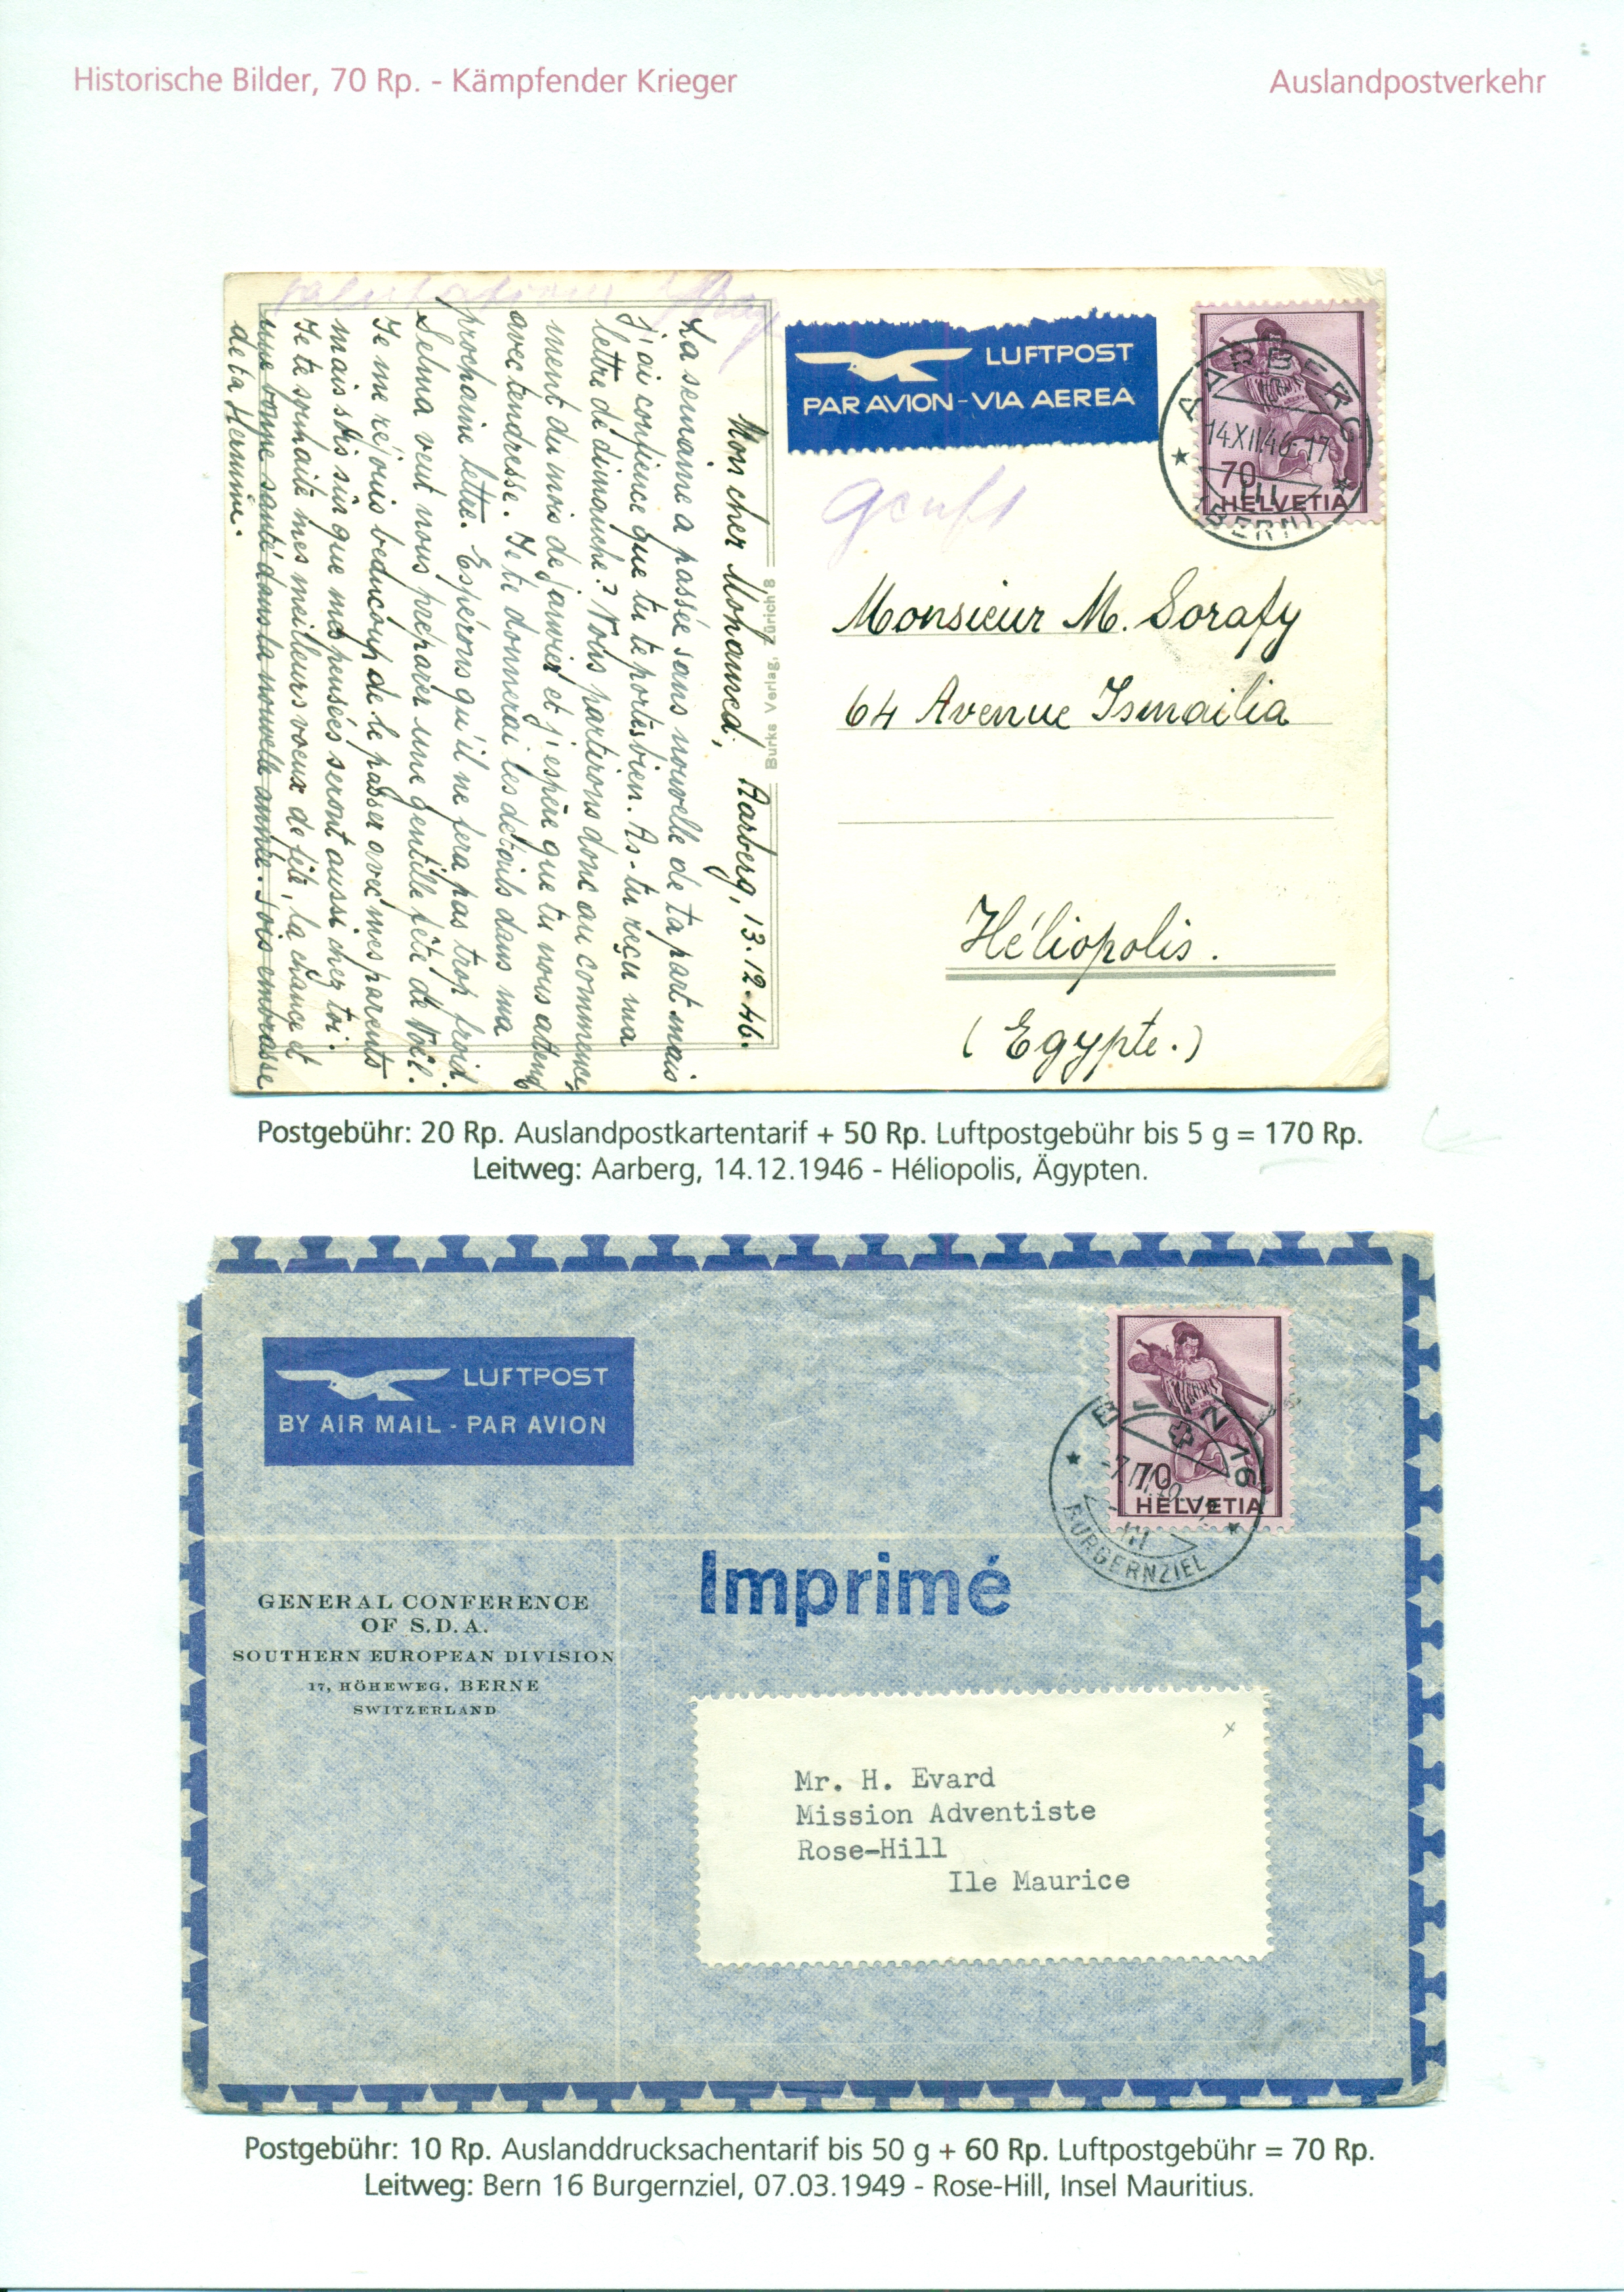 Historische Bilder, 70 Rp. - Kämpfender Krieger
Auslandpostverkehr
LUFTPOST
PAR AVION - VIA AEREA
AARBERG
14.XII.46-17
III
(BERN)
70
HELVETIA
Mon cher Mohamed, Aarberg, 13.12.46.
La semaine a passée sans nouvelle de ta part mais
j'ai confience que tu te portes bien. As-tu reçu ma
lettre de dimanche? Nous partirons donc au commence-
ment du mois de janvier et j'espère que tu nous attend
avec tendresse. Je te donnerai les détails dans ma
prochaine lettre. Espérons qu'il ne fera pas trop froid.
Selma veut nous préparer une gentille fête de Noël.
Je me réjouis beaucoup de le passer avec mes parents
mais sois sûr que mes pensées seront aussi chez toi.
Je te souhaite mes meilleurs voeux de fête, la chance et
une bonne santé dans la nouvelle année. Sois embrassé
de ta Hermine.
Burka Verlag, Zürich 8
Monsieur M. Sorafy
64 Avenue Ismailia
Héliopolis.
(Egypte.)
Postgebühr: 20 Rp. Auslandpostkartentarif + 50 Rp. Luftpostgebühr bis 5 g = 170 Rp.
Leitweg: Aarberg, 14.12.1946 - Héliopolis, Ägypten.
LUFTPOST
BY AIR MAIL - PAR AVION
70
HELVETIA
16
III
BURGERNZIEL
Imprimé
GENERAL CONFERENCE
OF S.D.A.
SOUTHERN EUROPEAN DIVISION
17, HÖHEWEG, BERNE
SWITZERLAND
x
Mr. H. Evard
Mission Adventiste
Rose-Hill
Ile Maurice
Postgebühr: 10 Rp. Auslanddrucksachentarif bis 50 g + 60 Rp. Luftpostgebühr = 70 Rp.
Leitweg: Bern 16 Burgernziel, 07.03.1949 - Rose-Hill, Insel Mauritius.